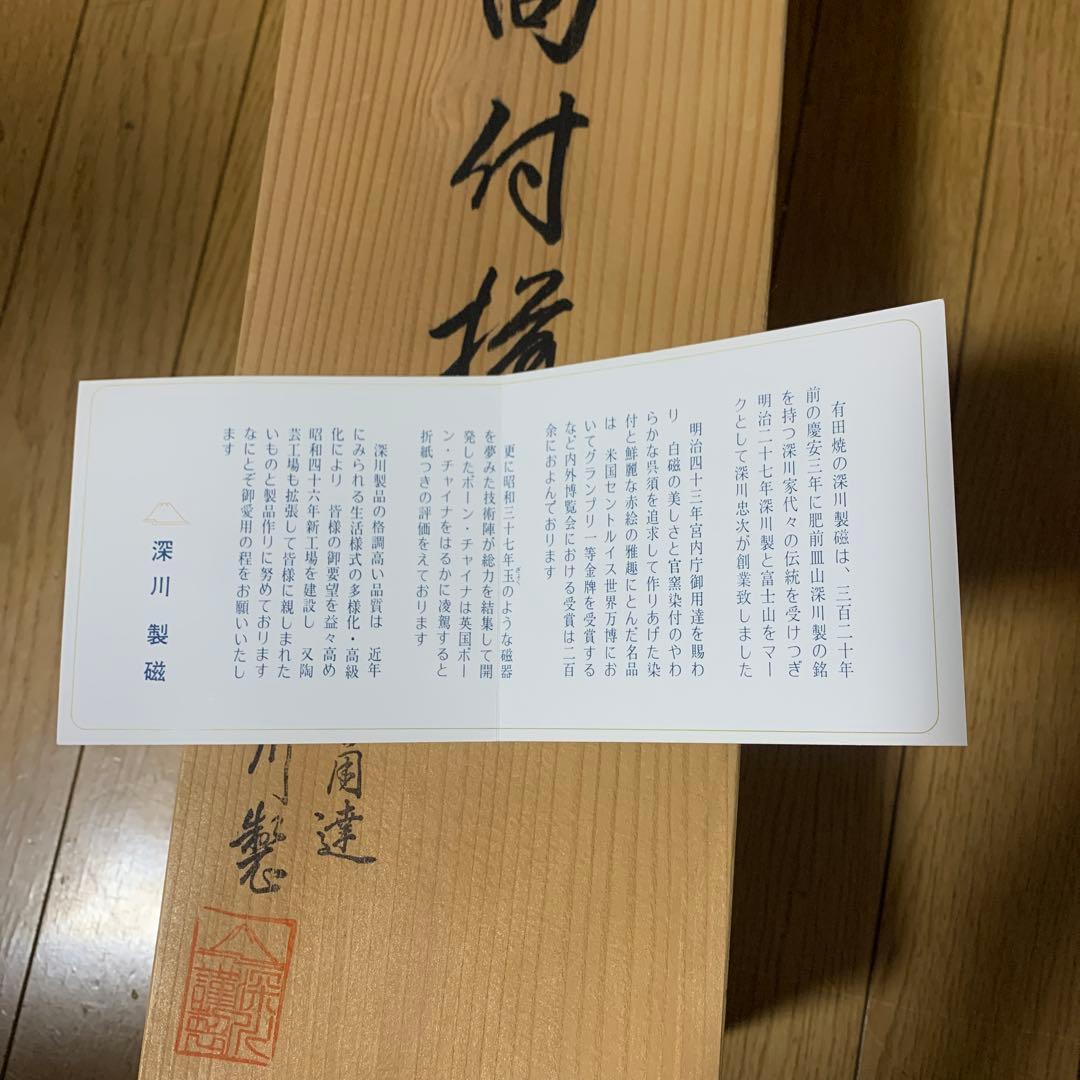 向付揃
用達
川製
有田焼の深川製磁は、三百二十年
前の慶安三年に肥前皿山深川製の銘
を持つ深川家代々の伝統を受けつぎ
明治二十七年深川製と富士山をマー
クとして深川忠次が創業致しました
明治四十三年宮内庁御用達を賜わ
り 白磁の美しさと官窯染付のやわ
らかな呉須を追求して作りあげた染
付と鮮麗な赤絵の雅趣にとんだ名品
は 米国セントルイス世界万博にお
いてグランプリ一等金牌を受賞する
など内外博覧会における受賞は二百
余におよんでおります
更に昭和三十七年玉のような磁器
を夢みた技術陣が総力を結集して開
発したボーン・チャイナは英国ボー
ン・チャイナをはるかに凌駕すると
折紙つきの評価をえております
深川製品の格調高い品質は 近年
にみられる生活様式の多様化・高級
化により 皆様の御要望を益々高め
昭和四十六年新工場を建設し 又陶
芸工場も拡張して皆様に親しまれた
いものと製品作りに努めております
なにとぞ御愛用の程をお願いいたし
ます
深川製磁